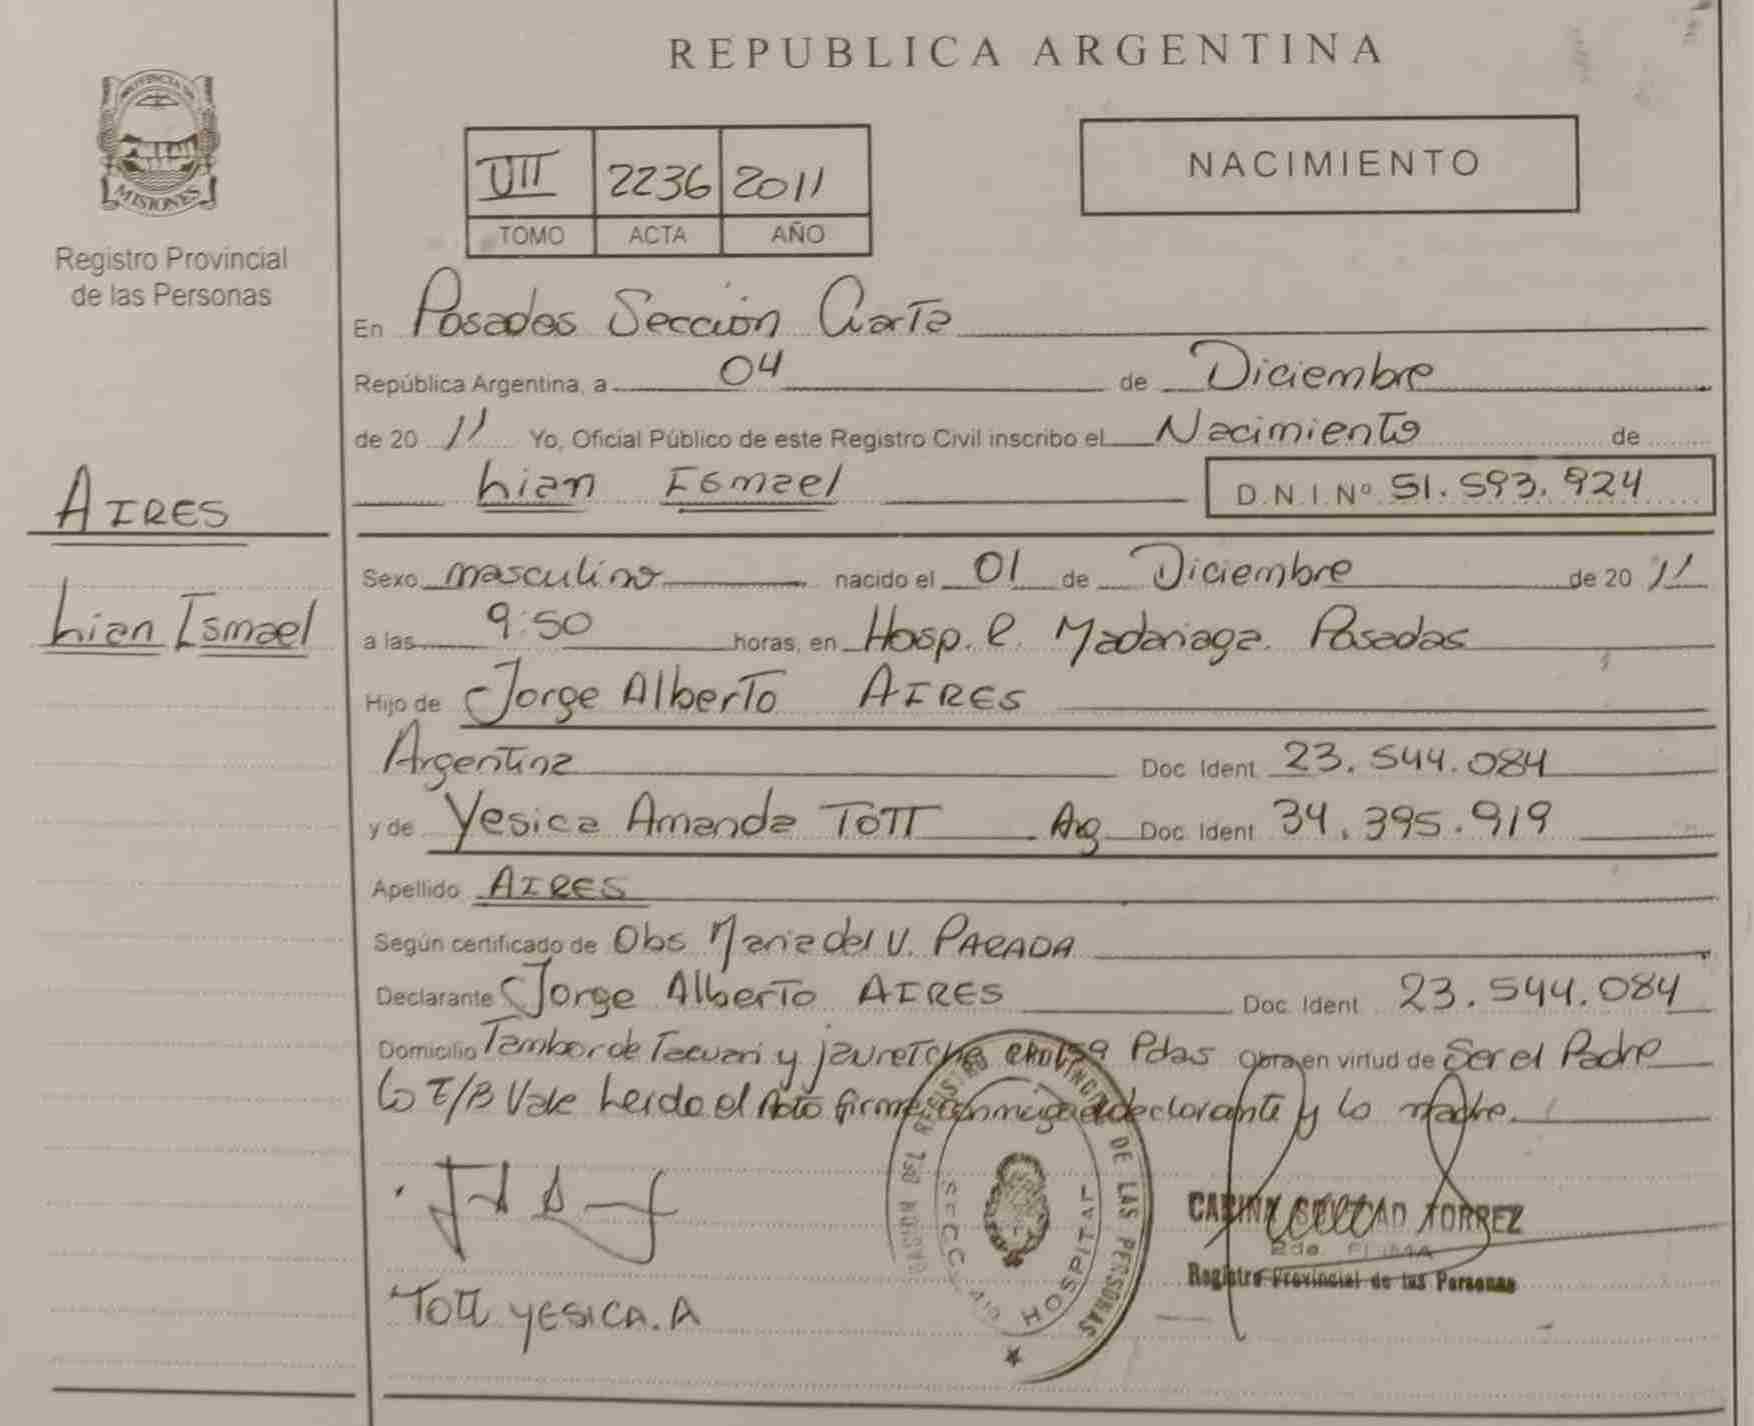 REPUBLICA ARGENTINA
PROVINCIA DE
MISIONES
Registro Provincial
de las Personas
VII 2236 2011
TOMO ACTA AÑO
NACIMIENTO
En Posadas Sección Cuarta
República Argentina, a 04 de Diciembre
de 20 11 Yo, Oficial Público de este Registro Civil inscribo el Nacimiento de
Lian Ismael D.N.I. Nº 51.593.924
AIRES
Lian Ismael
Sexo masculino nacido el 01 de Diciembre de 20 11
a las 9:50 horas, en Hosp. R. Madariaga. Posadas
Hijo de Jorge Alberto AIRES
Argentina Doc. Ident. 23.544.084
y de Yesica Amanda TOTT Arg Doc. Ident. 34.395.919
Apellido AIRES
Según certificado de Obs Maria del V. PARADA
Declarante Jorge Alberto AIRES Doc. Ident. 23.544.084
Domicilio Tambor de Tacuari y Jauretche Pdas Obra en virtud de Ser el Padre
Lo E/B Vale Leido el Acta firman conmigo el declarante y la madre.
REGISTRO PROVINCIAL DE LAS PERSONAS
SECC HOSPITAL
TOTT YESICA.A
TORREZ
Registro Provincial de las Personas